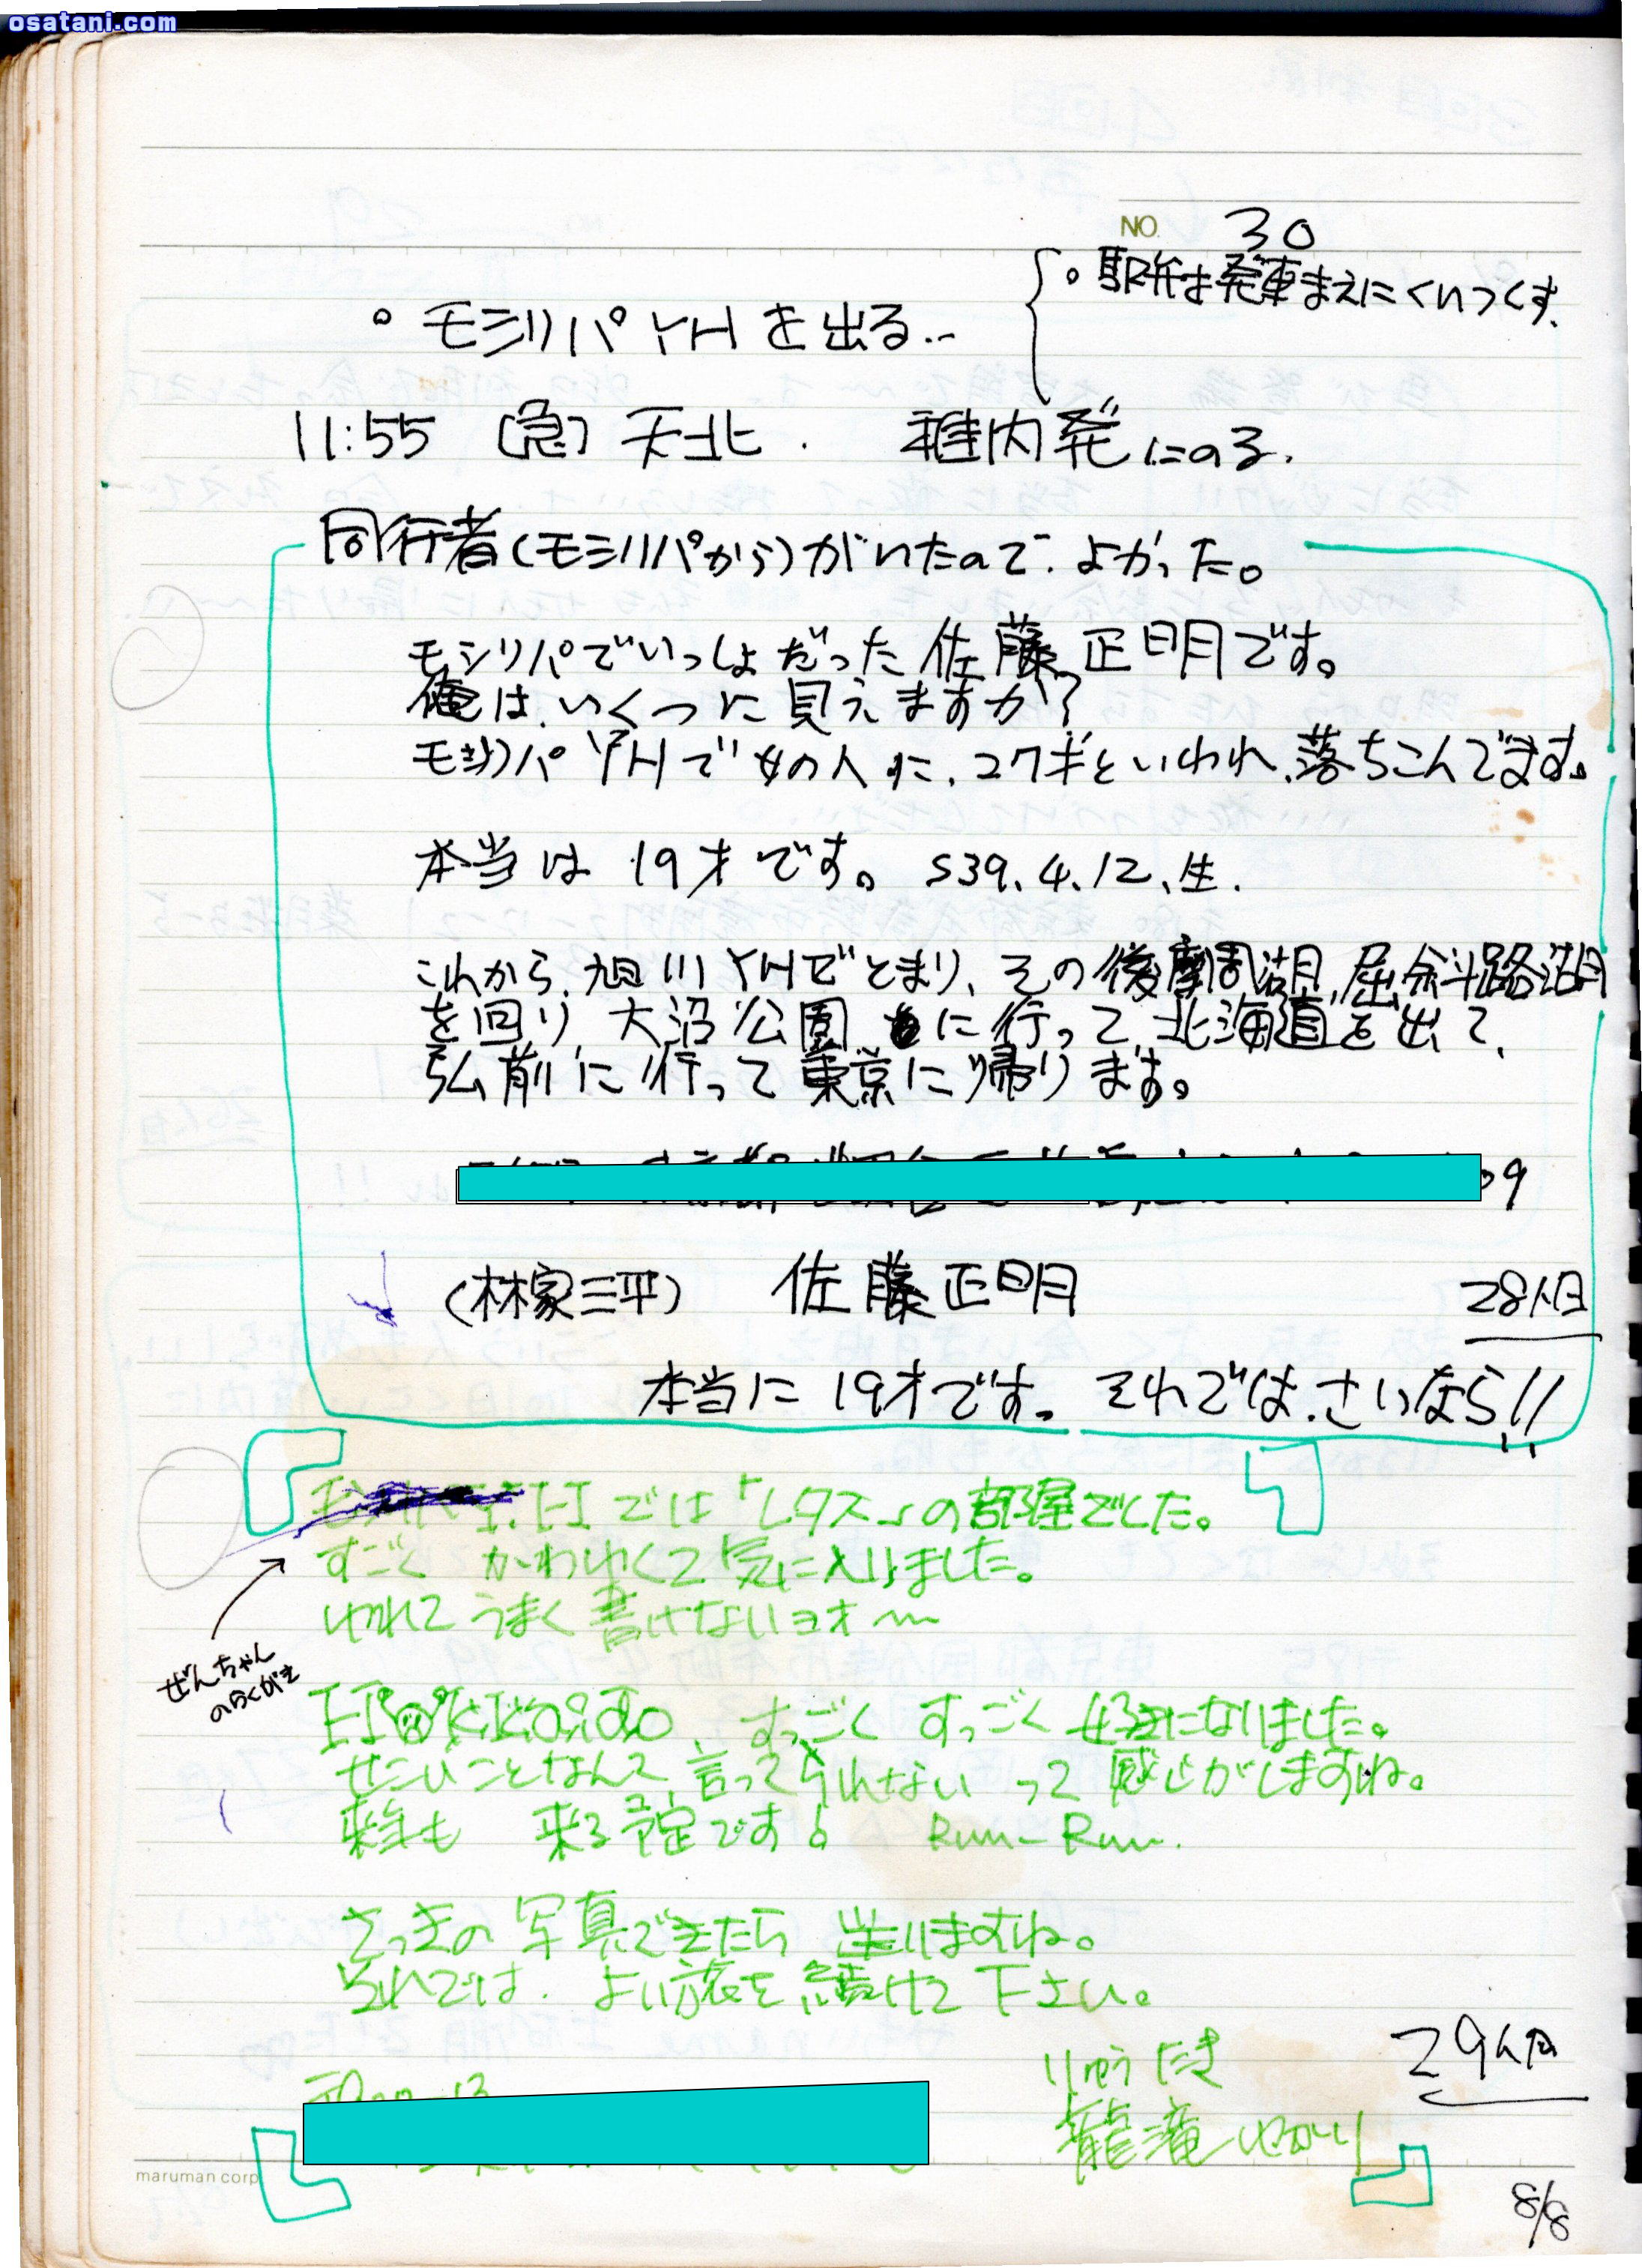 osatani.com
NO. 30
。駅弁は発車まえにくいつくす.
。モシリパYHを出る..
11:55 〔急〕天北. 稚内発にのる.
同行者(モシリパから)がいたので.よかった。
モシリパでいっしょだった佐藤正明です。
俺は、いくつに見えますか?
モシリパYHで女の人に、コワギといわれ、落ちこんでます。
本当は19才です。S39.4.12.生.
これから、旭川YHでとまり、その後摩周湖,屈斜路湖
を回り、大沼公園に行って、北海道を出て、
弘前に行って東京に帰ります。
09
(林家三平) 佐藤正明
28人目
本当に19才です。それでは.さいなら!!
Y.Hでは「レタス」の部屋でした。
すごく かわゆくて気に入りました。
ゆれてうまく書けないヨオ〜
ぜんちゃん
のらくがき
Hokkaido、すっごく すっごく 好きになりました。
せこいことなんて、言ってられない って 感じがしますね。
来年も 来る予定です。 Run-Run.
さっきの 写真できたら 送りますね。
それでは. よい旅を続けて下さい。
りゅうたき
龍滝ゆかり
29人目
maruman corp.
8/8